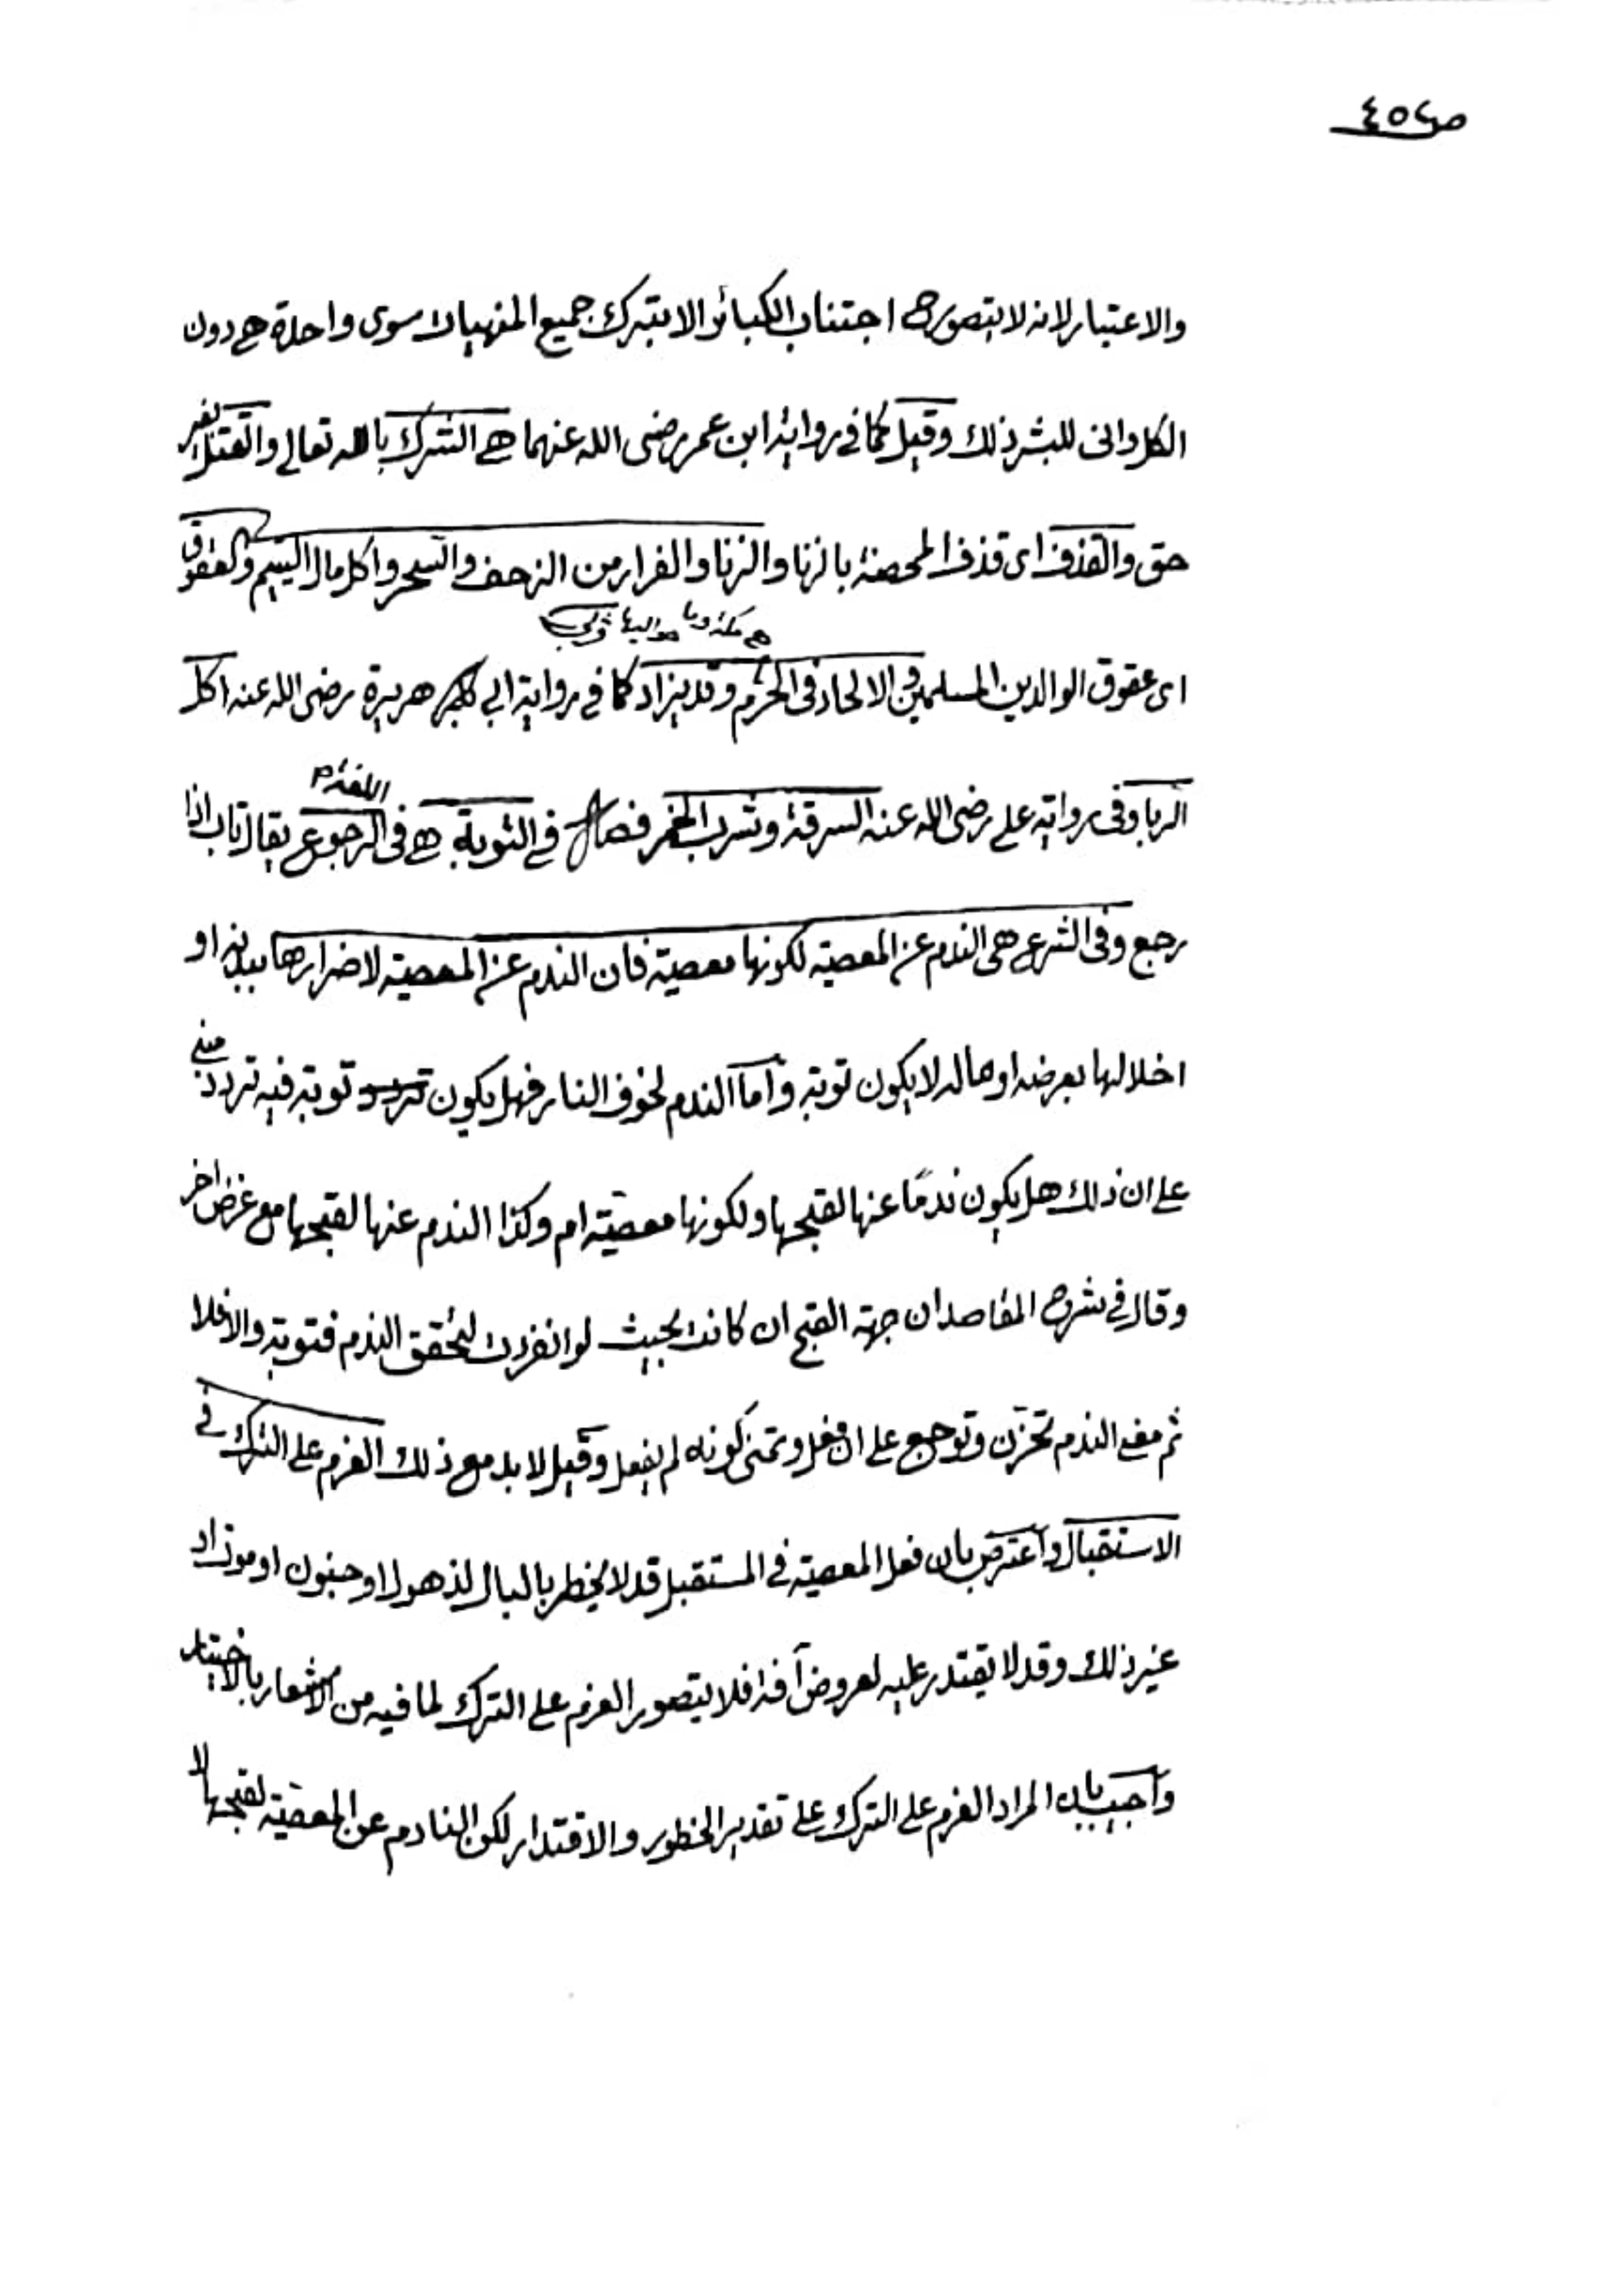 ص٤٥٤
والاعتبار لانه لا يتصور ح اجتناب الكبائر الا بترك جميع المنهيات سوى واحدة هي دون
الكل وانى للبشر ذلك وقيل كما في رواية ابن عمر رضى الله عنهما هي الشرك بالله تعالى والقتل بغير
حق والقذف اى قذف المحصنة بالزنا والزنا والفرار من الزحف والسحر واكل مال اليتيم والعقوق
هي مكة وما حواليها
اى عقوق الوالدين المسلمين والالحاد فى الحرم وقد يزاد كما في رواية ابي هريرة رضى الله عنه اكل
اللغة م
الربا وفى رواية على رضى الله عنه السرقة وشرب الخمر فصل في التوبة هي فى الرجوع يقال تاب اذا
رجع وفى الشرع هى الندم عن المعصية لكونها معصية فان الندم عن المعصية لاضرارها ببدنه او
اخلالها بعرضه او ماله لا يكون توبة واما الندم لخوف النار فهل يكون توبة فيه تردد مبني
على ان ذلك هل يكون ندمًا عنها لقبحها ولكونها معصية ام وكذا الندم عنها لقبحها مع غرض اخر
وقال في شرح المقاصد ان جهة القبح ان كانت بحيث لو انفردت لتحقق الندم فتوبة والا فلا
ثم معنى الندم تحزن وتوجع على ان فعل وتمنى كونه لم يفعل وقيل لا بد مع ذلك العزم على الترك في
الاستقبال واعترض بان فعل المعصية في المستقبل قد لا يخطر بالبال لذهول او جنون او موت او
غير ذلك وقد لا يقتدر عليه لعروض آفة فلا يتصور العزم على الترك لما فيه من الاشعار بالاختيار
واجيب بان المراد العزم على الترك على تقدير الخطور والاقتدار لكن النادم عن المعصية لقبحها لا